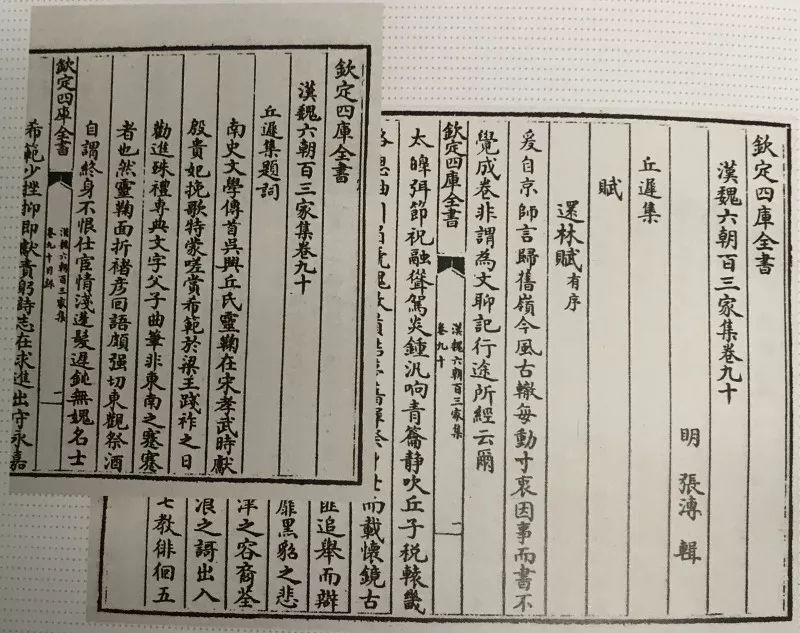 欽定四庫全書
漢魏六朝百三家集卷九十
丘遲集題詞
南史文學傳首吳興丘氏靈鞠在宋孝武時獻
殷貴妃挽歌特蒙嗟賞希範於梁王踐祚之日
勸進珠禮專典文字父子曲筆非東南之蹇蹇
者也然靈鞠面折褚彥回語頗强切東觀祭酒
自謂終身不恨仕宦情淺蓬髮遲鈍無媿名士
欽定四庫全書
漢魏六朝百三家集
卷九十目録
希範少挫抑即獻責躬詩志在求進出守永嘉
欽定四庫全書
漢魏六朝百三家集卷九十
明 張溥 輯
丘遲集
賦
還林賦有序
爰自京師言歸舊嶺今風古轍每動寸衷因事而書不
覺成卷非謂為文聊記行途所經云爾
欽定四庫全書
漢魏六朝百三家集
卷九十
太皥弭節祝融聳駕炎鍾汎响青籥靜吹丘子税轅畿
而載懷鏡古
匪追舉而辯
靡黑貂之悲
洋之容裔荃
浪之謌出入
七教徘徊五